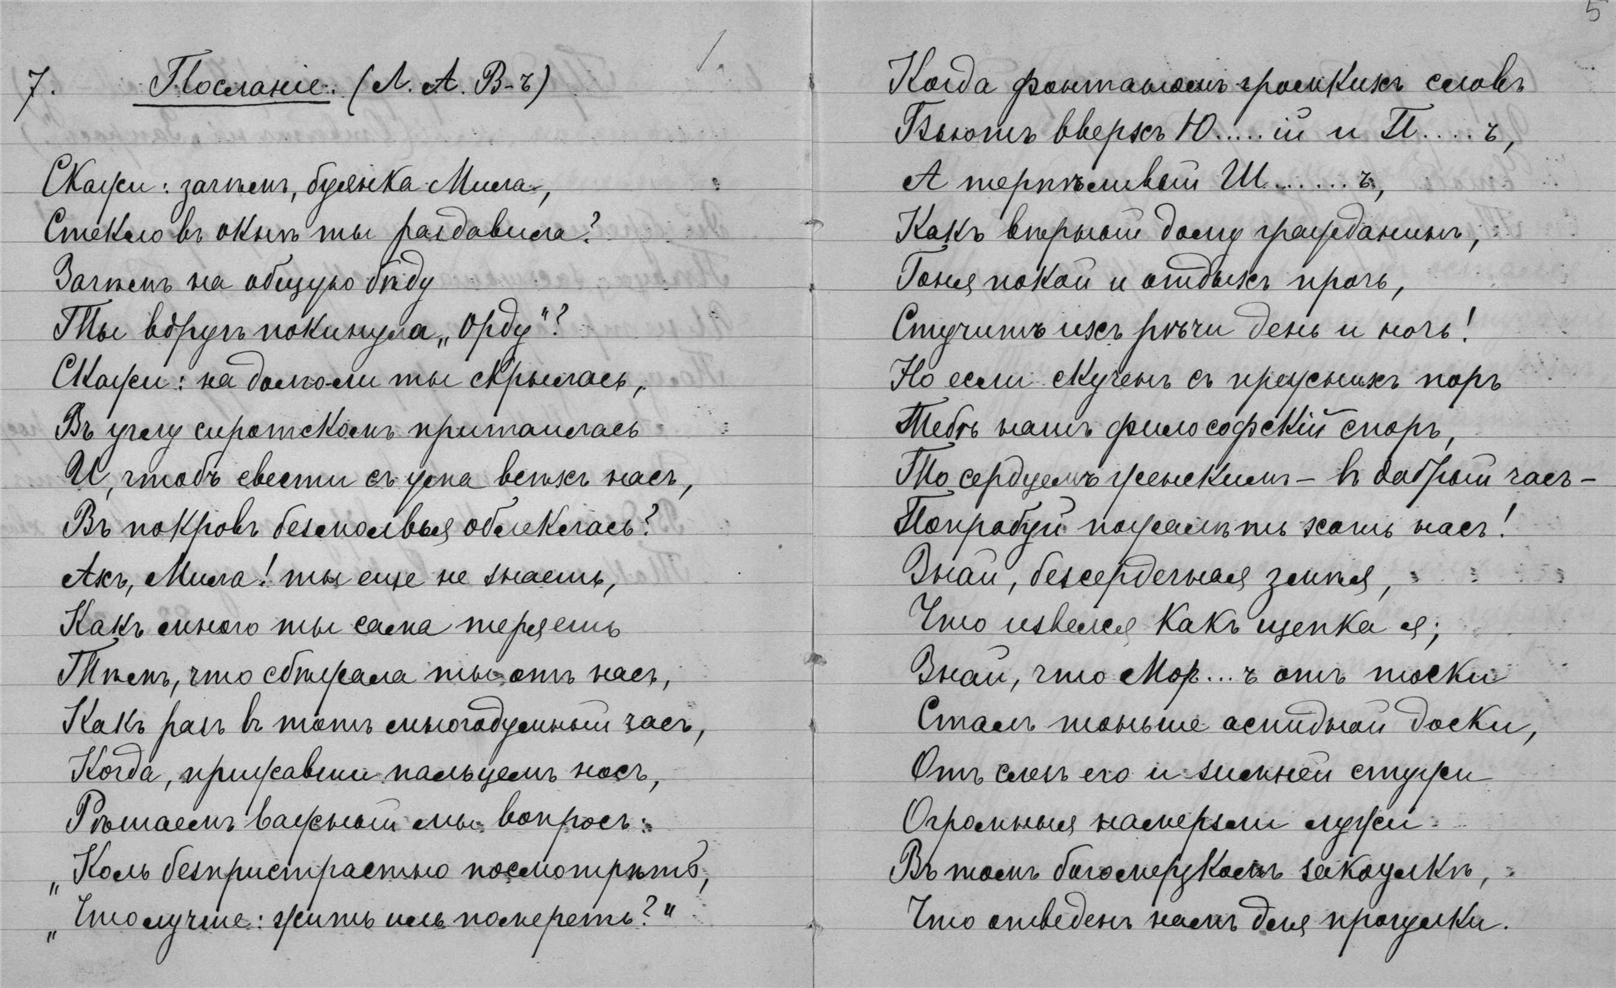 1.
7. Посланіе. (Л. А. В-ъ)
Скажи: зачѣмъ, буянка Мила,
Стекло въ окнѣ ты раздавила?
Зачѣмъ на общую бѣду
Ты вдругъ покинула „Орду"?
Скажи: на долго ли ты скрылась,
Въ углу сиротскомъ притаилась
И, чтобъ свести съ ума всѣхъ насъ,
Въ покровъ безмолвья облеклась?
Ахъ, Мила! ты еще не знаешь,
Какъ много ты сама теряешь
Тѣмъ, что сбѣжала ты отъ насъ,
Какъ разъ въ тотъ многодумный часъ,
Когда, прижавши пальцемъ носъ,
Рѣшаемъ важный мы вопросъ:
„Коль безпристрастно посмотрѣть,
„Что лучше: жить иль помереть?"
5
Когда фонтаномъ громкихъ словъ
Бьютъ вверхъ Ю.....ій и П....ъ,
А терпѣливый Ш.......ъ,
Какъ вѣрный дому гражданинъ,
Гоня покой и отдыхъ прочь,
Стучитъ ихъ рѣчи день и ночь!
Но если скученъ съ прежнихъ поръ
Тебѣ нашъ философскій споръ,
То сердцемъ женскимъ – въ добрый часъ –
Попробуй пожалѣть хоть насъ!
Знай, безсердечная змѣя,
Что извелся какъ щепка я;
Знай, что Мор...ъ отъ тоски
Сталъ тоньше аспидной доски,
Отъ слезъ его и зимней стужи
Огромныя намерзли лужи
Въ томъ богомерзкомъ закоулкѣ,
Что отведенъ намъ для прогулки.